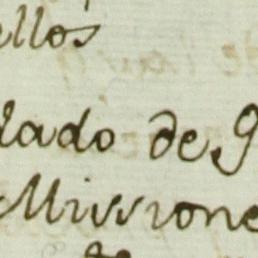 ellos
lado de
Missione